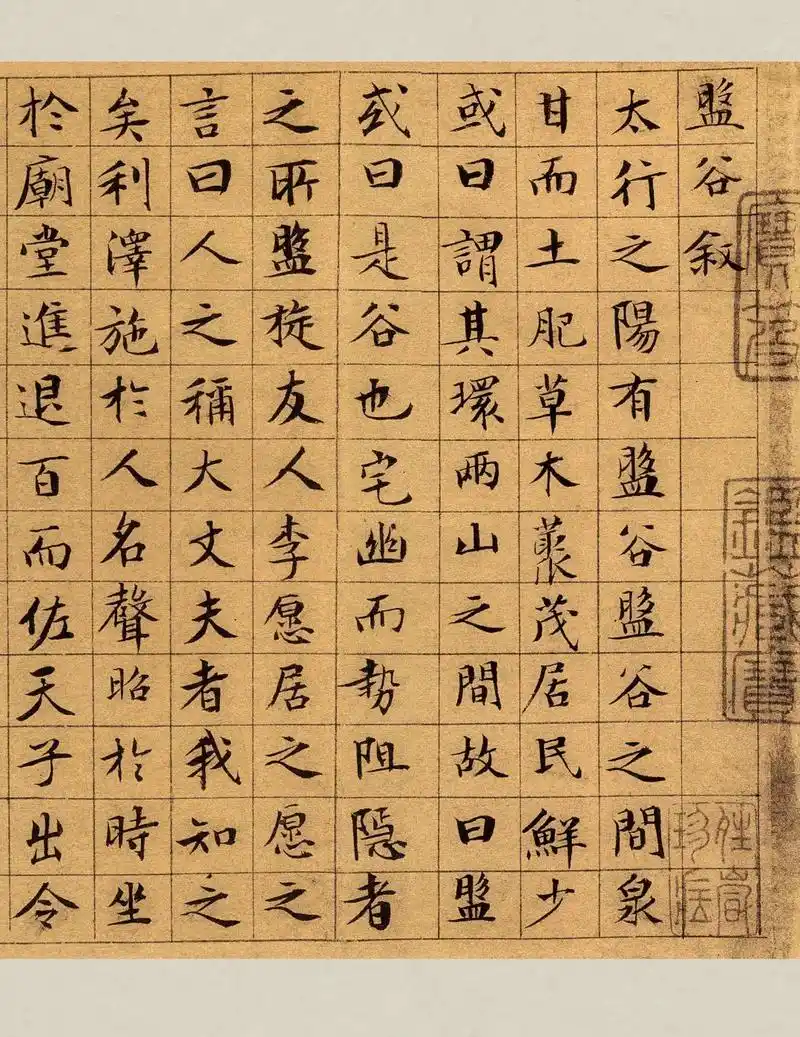 盤谷叙
太行之陽有盤谷盤谷之間泉
甘而土肥草木藂茂居民鮮少
或曰謂其環兩山之間故曰盤
或曰是谷也宅幽而勢阻隱者
之所盤旋友人李愿居之愿之
言曰人之稱大丈夫者我知之
矣利澤施於人名聲昭於時坐
於廟堂進退百而佐天子出令